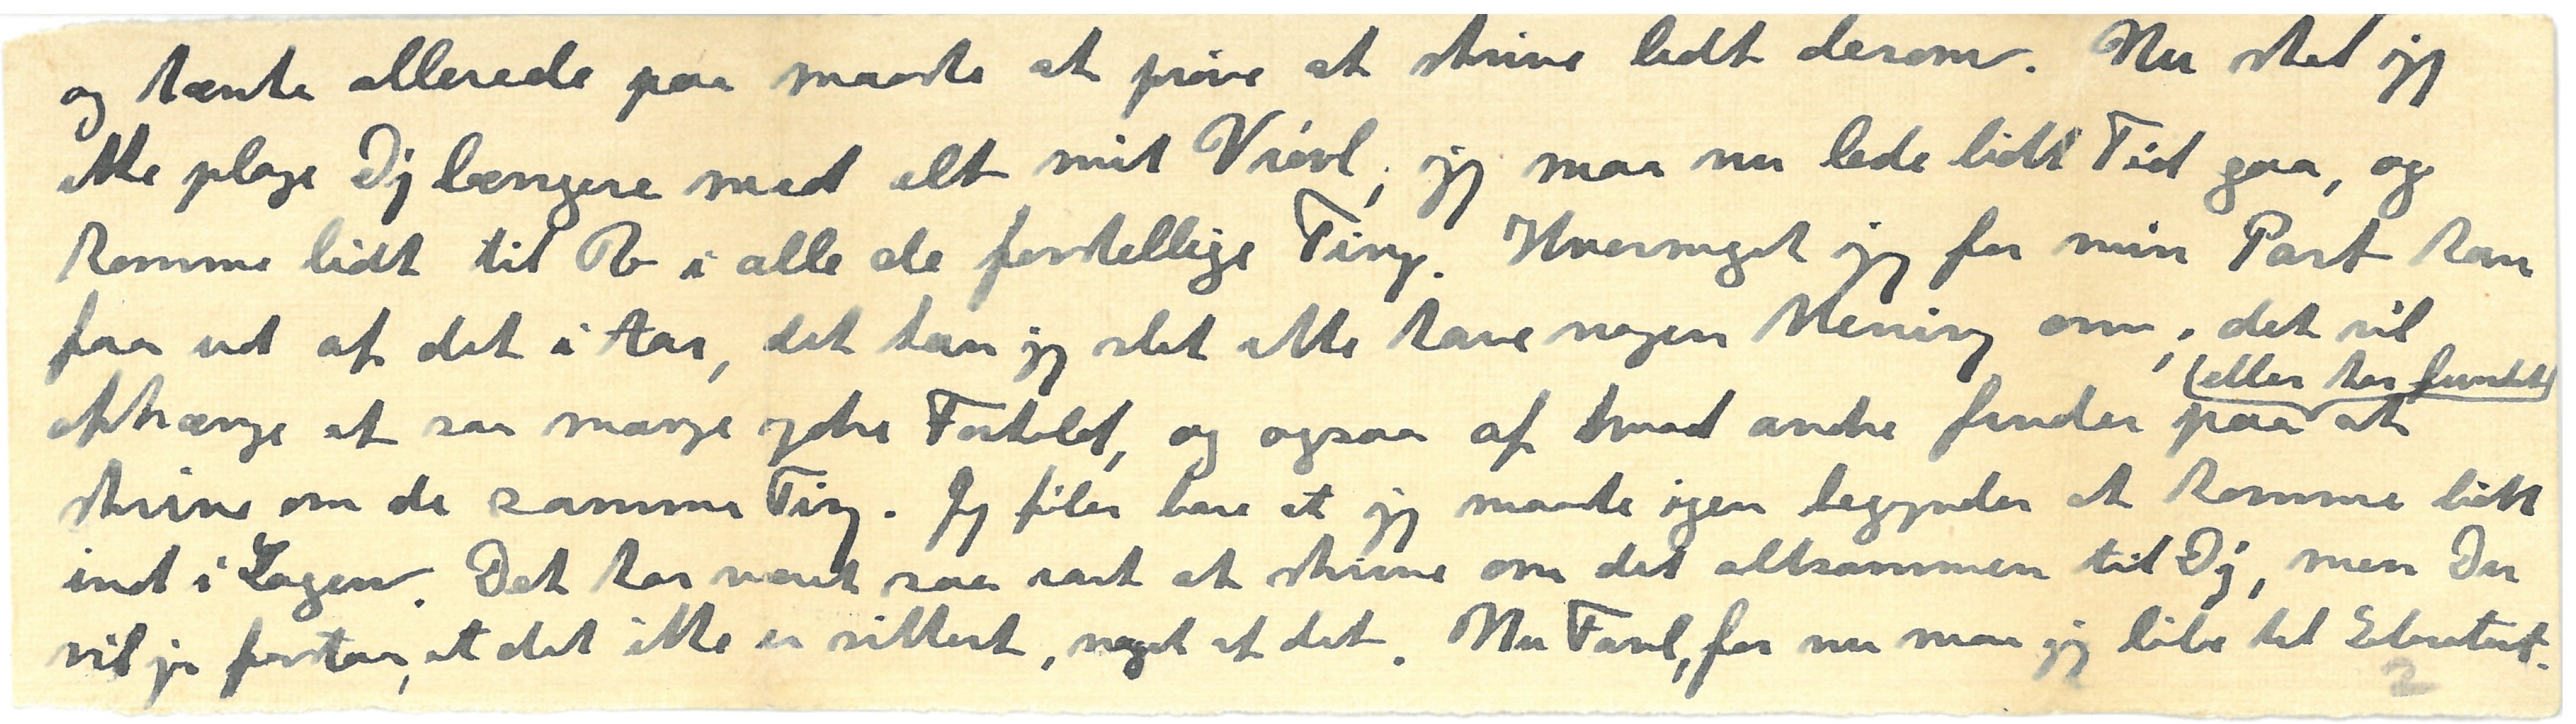 og tænkte allerede paa maaske at prøve at skrive lidt derom. Nu skal jeg
ikke plage Dig længere med alt mit Vrøvl, jeg maa nu lade lidt Tid gaa, og
komme lidt til Ro i alle de forskellige Ting. Hvormeget jeg for min Part kan
faa ud af det i Aar, det kan jeg slet ikke have nogen Mening om, det vil
(eller har fundet)
afhænge af saa mange ydre Forhold, og ogsaa af hvad andre finder paa at
skrive om de samme Ting. Jeg føler bare at jeg maaske igen begynder at komme lidt
ind i Sagen. Det har været saa rart at skrive om det altsammen til Dig, men Du
vil jo forstaa, at det ikke er sikkert, noget af det. Nu Farvel, for nu maa jeg løbe til
2